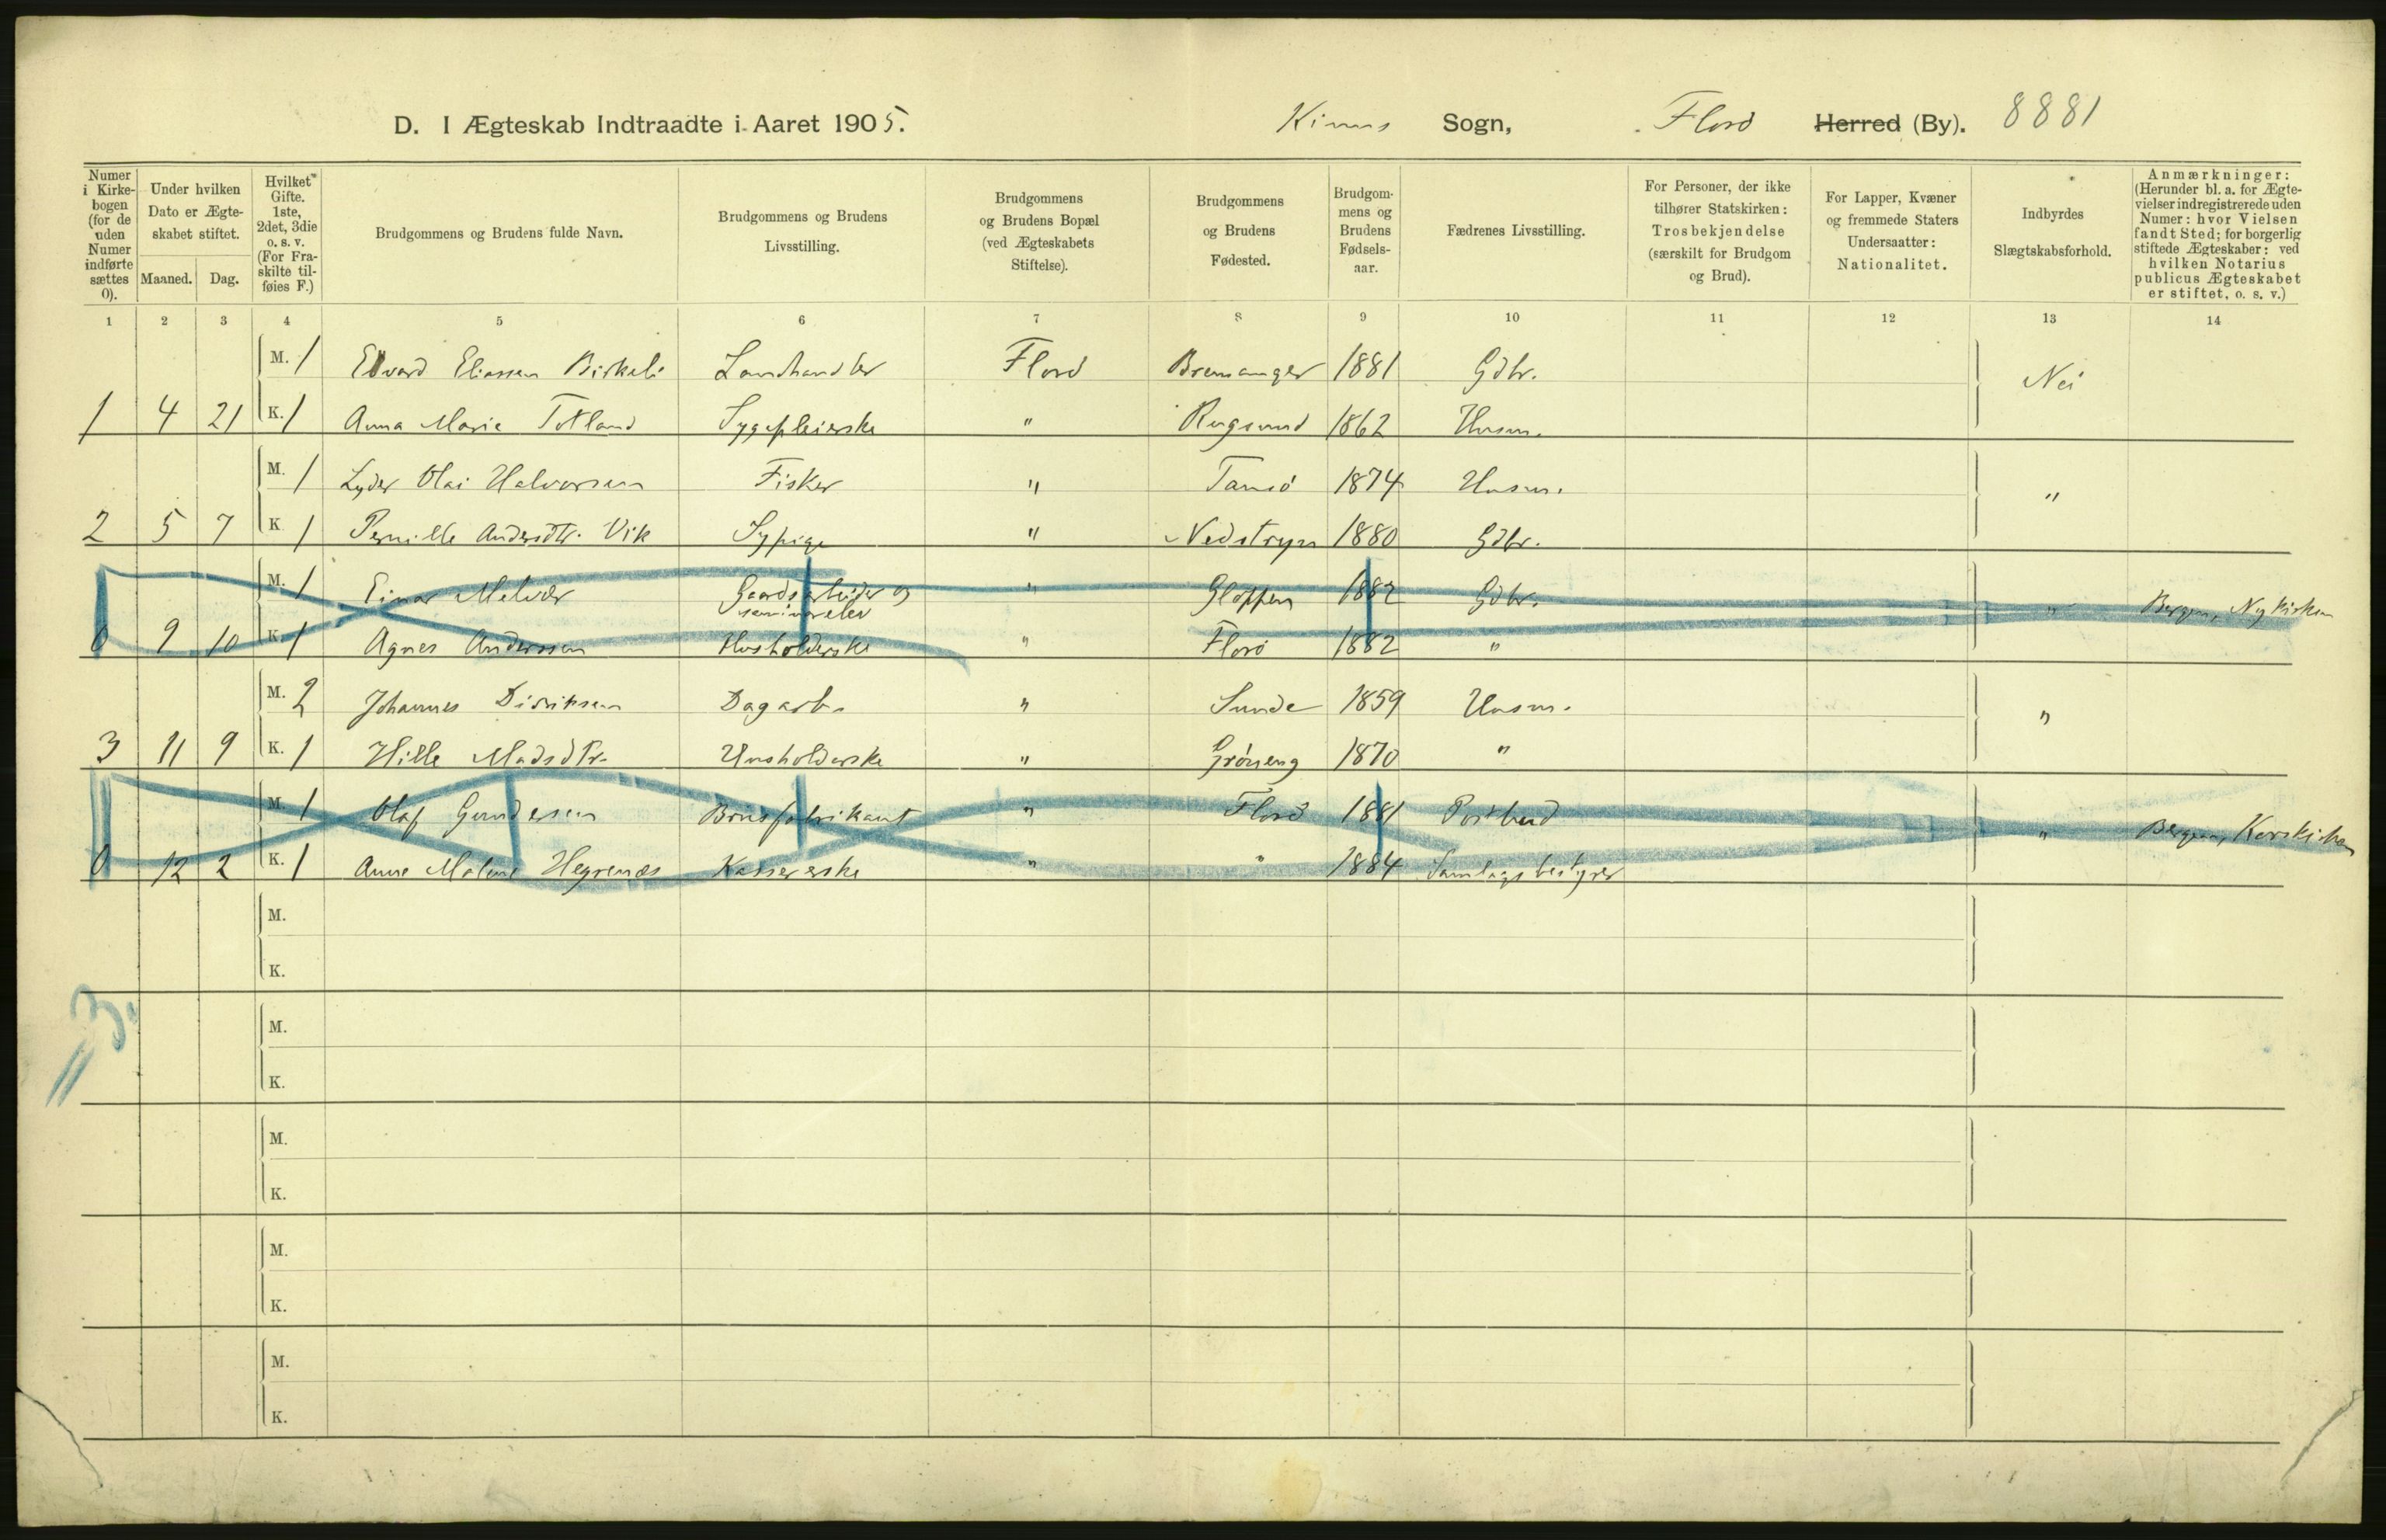 D. I Ægteskab Indtraadte i Aaret 1905. Kinns Sogn, Florø Herred (By). 8881
Numer i Kirkebogen (for de uden Numer indførte sættes 0).
Under hvilken Dato er Ægteskabet stiftet.
Maaned. Dag.
Hvilket Gifte. 1ste, 2det, 3die o. s. v. (For Fraskilte tilføies F.)
Brudgommens og Brudens fulde Navn.
Brudgommens og Brudens Livsstilling.
Brudgommens og Brudens Bopæl (ved Ægteskabets Stiftelse).
Brudgommens og Brudens Fødested.
Brudgommens og Brudens Fødselsaar.
Fædrenes Livsstilling.
For Personer, der ikke tilhører Statskirken: Trosbekjendelse (særskilt for Brudgom og Brud).
For Lapper, Kvæner og fremmede Staters Undersaatter: Nationalitet.
Indbyrdes Slægtskabsforhold.
Anmærkninger: (Herunder bl. a. for Ægtevielser indregistrerede uden Numer: hvor Vielsen fandt Sted; for borgerlig stiftede Ægteskaber: ved hvilken Notarius publicus Ægteskabet er stiftet, o. s. v.)
1 2 3 4 5 6 7 8 9 10 11 12 13 14
M. 1 Edvard Eliassen Birkeli Landhandler Florø Bremanger 1881 Gdbr. Nei
1 4 21 K. 1 Anna Marie Totland Sygepleierske " Rugsund 1862 Husm.
M. 1 Lyder Olai Halvorsen Fisker " Tansø 1874 Husm. "
2 5 7 K 1 Pernille Andersdtr. Vik Sypige " Nedstryn 1880 Gdbr.
M. 1 Einar Melvær Gaardsarbeider og seminarelev " Gloppen 1882 Gdbr. " Bergen, Nykirken
0 9 10 K. 1 Agnes Anderssen Husholderske " Florø 1882 "
M. 2 Johannes Didriksen Dagarb. " Sunde 1859 Husm. "
3 11 9 K. 1 Hille Madsdtr. Husholderske " Grøneng 1870 "
M. 1 Olaf Gundersen Brusfabrikant " Florø 1881 Postbud " Bergen, Korskirken
0 12 2 K. 1 Anne Malene Hegrenæs Kassererske " " 1884 Samlagsbestyrer
M.
K.
3.
M.
K.
M.
K.
M.
K.
M.
K.